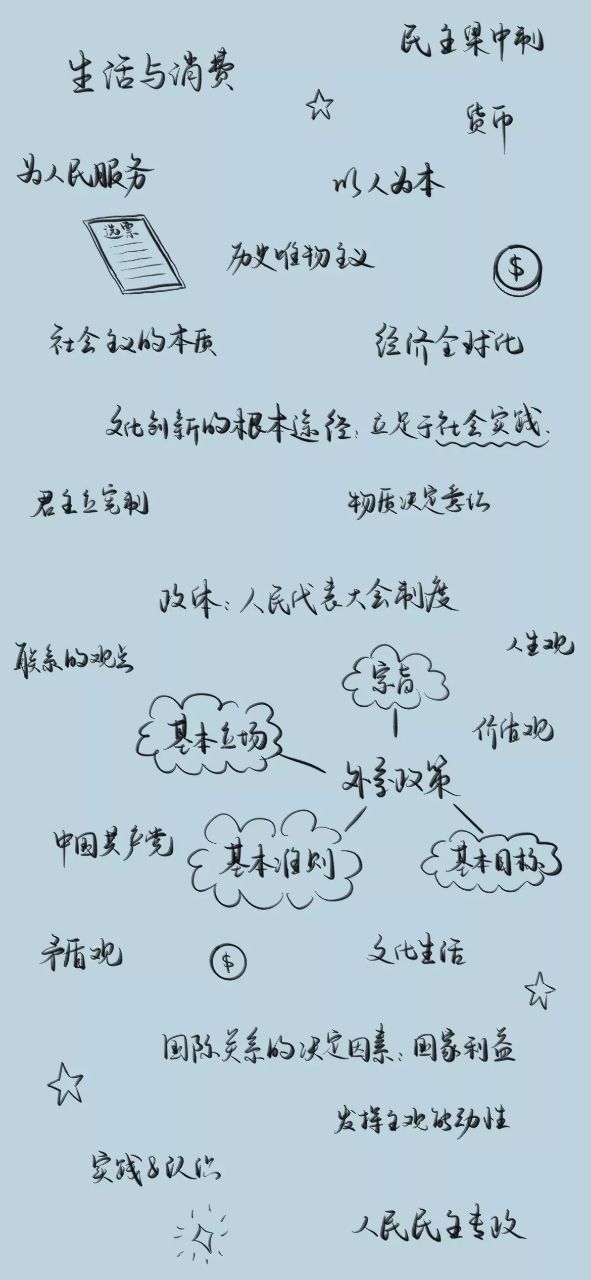 民主集中制
生活与消费
货币
为人民服务
以人为本
选票
历史唯物主义
$
社会主义的本质
经济全球化
文化创新的根本途径：立足于社会实践.
君主立宪制
物质决定意识
政体：人民代表大会制度
联系的观点
人生观
宗旨
价值观
基本立场
外交政策
中国共产党
基本准则
基本目标
矛盾观
$
文化生活
国际关系的决定因素：国家利益
发挥主观能动性
实践&认识
人民民主专政